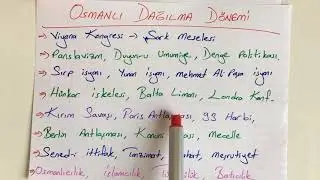 OSMANLI DAĞILMA DÖNEMİ
→ Viyana Kongresi → Şark Meselesi
→ Panslavizm, Duyunu Umumiye, Denge Politikası
→ Sırp isyanı, Yunan isyanı, Mehmet Ali Paşa isyanı
→ Hünkar iskelesi, Balta Limanı, Londra Konf.
→ Kırım Savaşı, Paris Antlaşması, 93 Harbi,
→ Berlin Antlaşması, Kanuni Mecelle
→ Sened-i ittifak, Tanzimat, meşrutiyet
→ Osmanlıcılık, islamcılık, Batıcılık